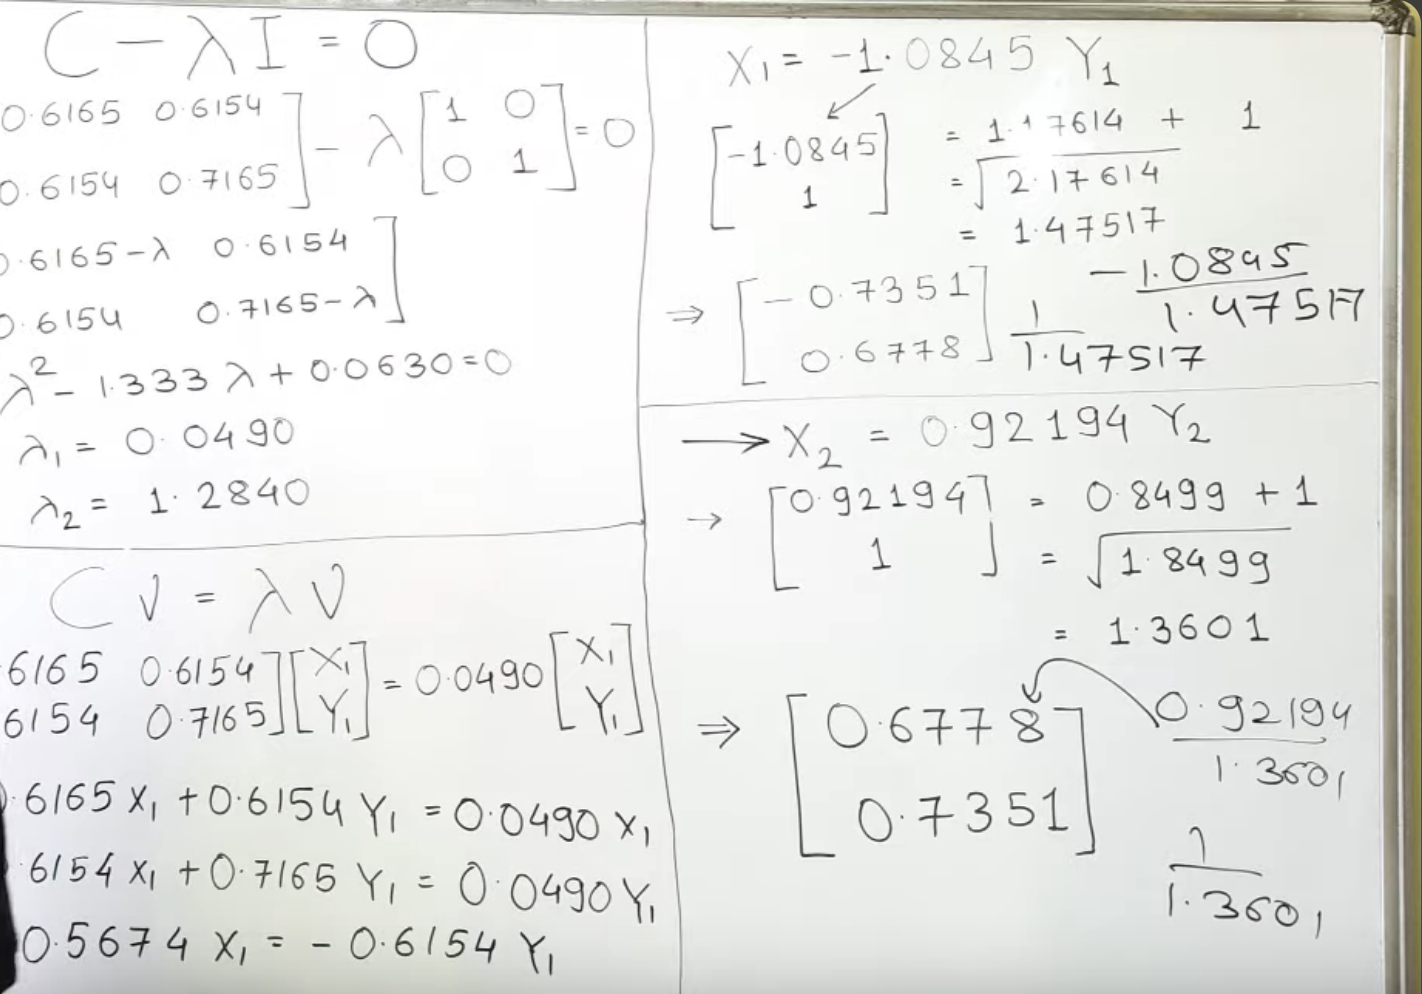 C - λI = 0
0.6165 0.6154] - λ[1 0
0.6154 0.7165] [0 1] = 0
0.6165-λ 0.6154
0.6154 0.7165-λ]
λ² - 1.333 λ + 0.0630 = 0
λ₁ = 0.0490
λ₂ = 1.2840
C V = λ V
6165 0.6154] [X₁] = 0.0490 [X₁]
6154 0.7165] [Y₁] [Y₁]
.6165 X₁ + 0.6154 Y₁ = 0.0490 X₁
.6154 X₁ + 0.7165 Y₁ = 0.0490 Y₁
0.5674 X₁ = - 0.6154 Y₁
X₁ = -1.0845 Y₁
[-1.0845] = 1.17614 + 1
[1] = √2.17614
= 1.47517
⇒ [-0.7351] -1.0845/1.47517
[0.6778] 1/1.47517
→ X₂ = 0.92194 Y₂
→ [0.92194] = 0.8499 + 1
[1] = √1.8499
= 1.3601
⇒ [0.6778] 0.92194/1.3601
[0.7351] 1/1.3601